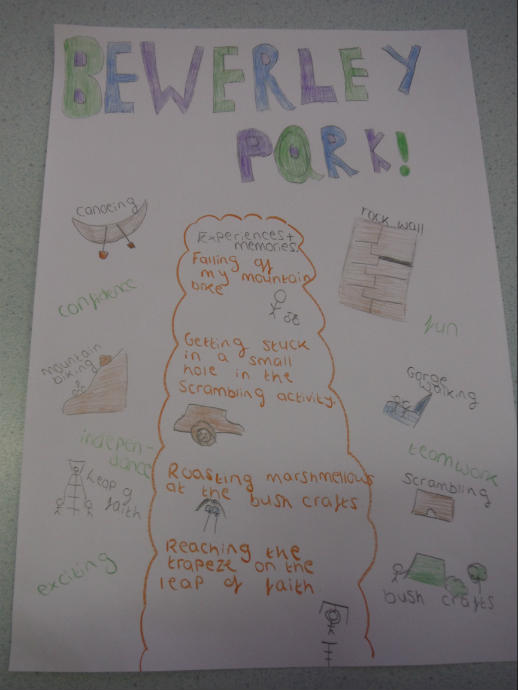 BEWERLEY
PARK!
canoeing
rock wall
Experiences +
memories.
Falling of
my mountain
bike
confidence
fun
Getting stuck
in a small
hole in the
scrambling activity.
mountain
biking
Gorge
walking
indepen-
dance
teamwork
Leap of
faith
Roasting marshmellows
at the bush crafts
Scrambling
Reaching the
trapeze on the
leap of faith
exciting
bush crafts